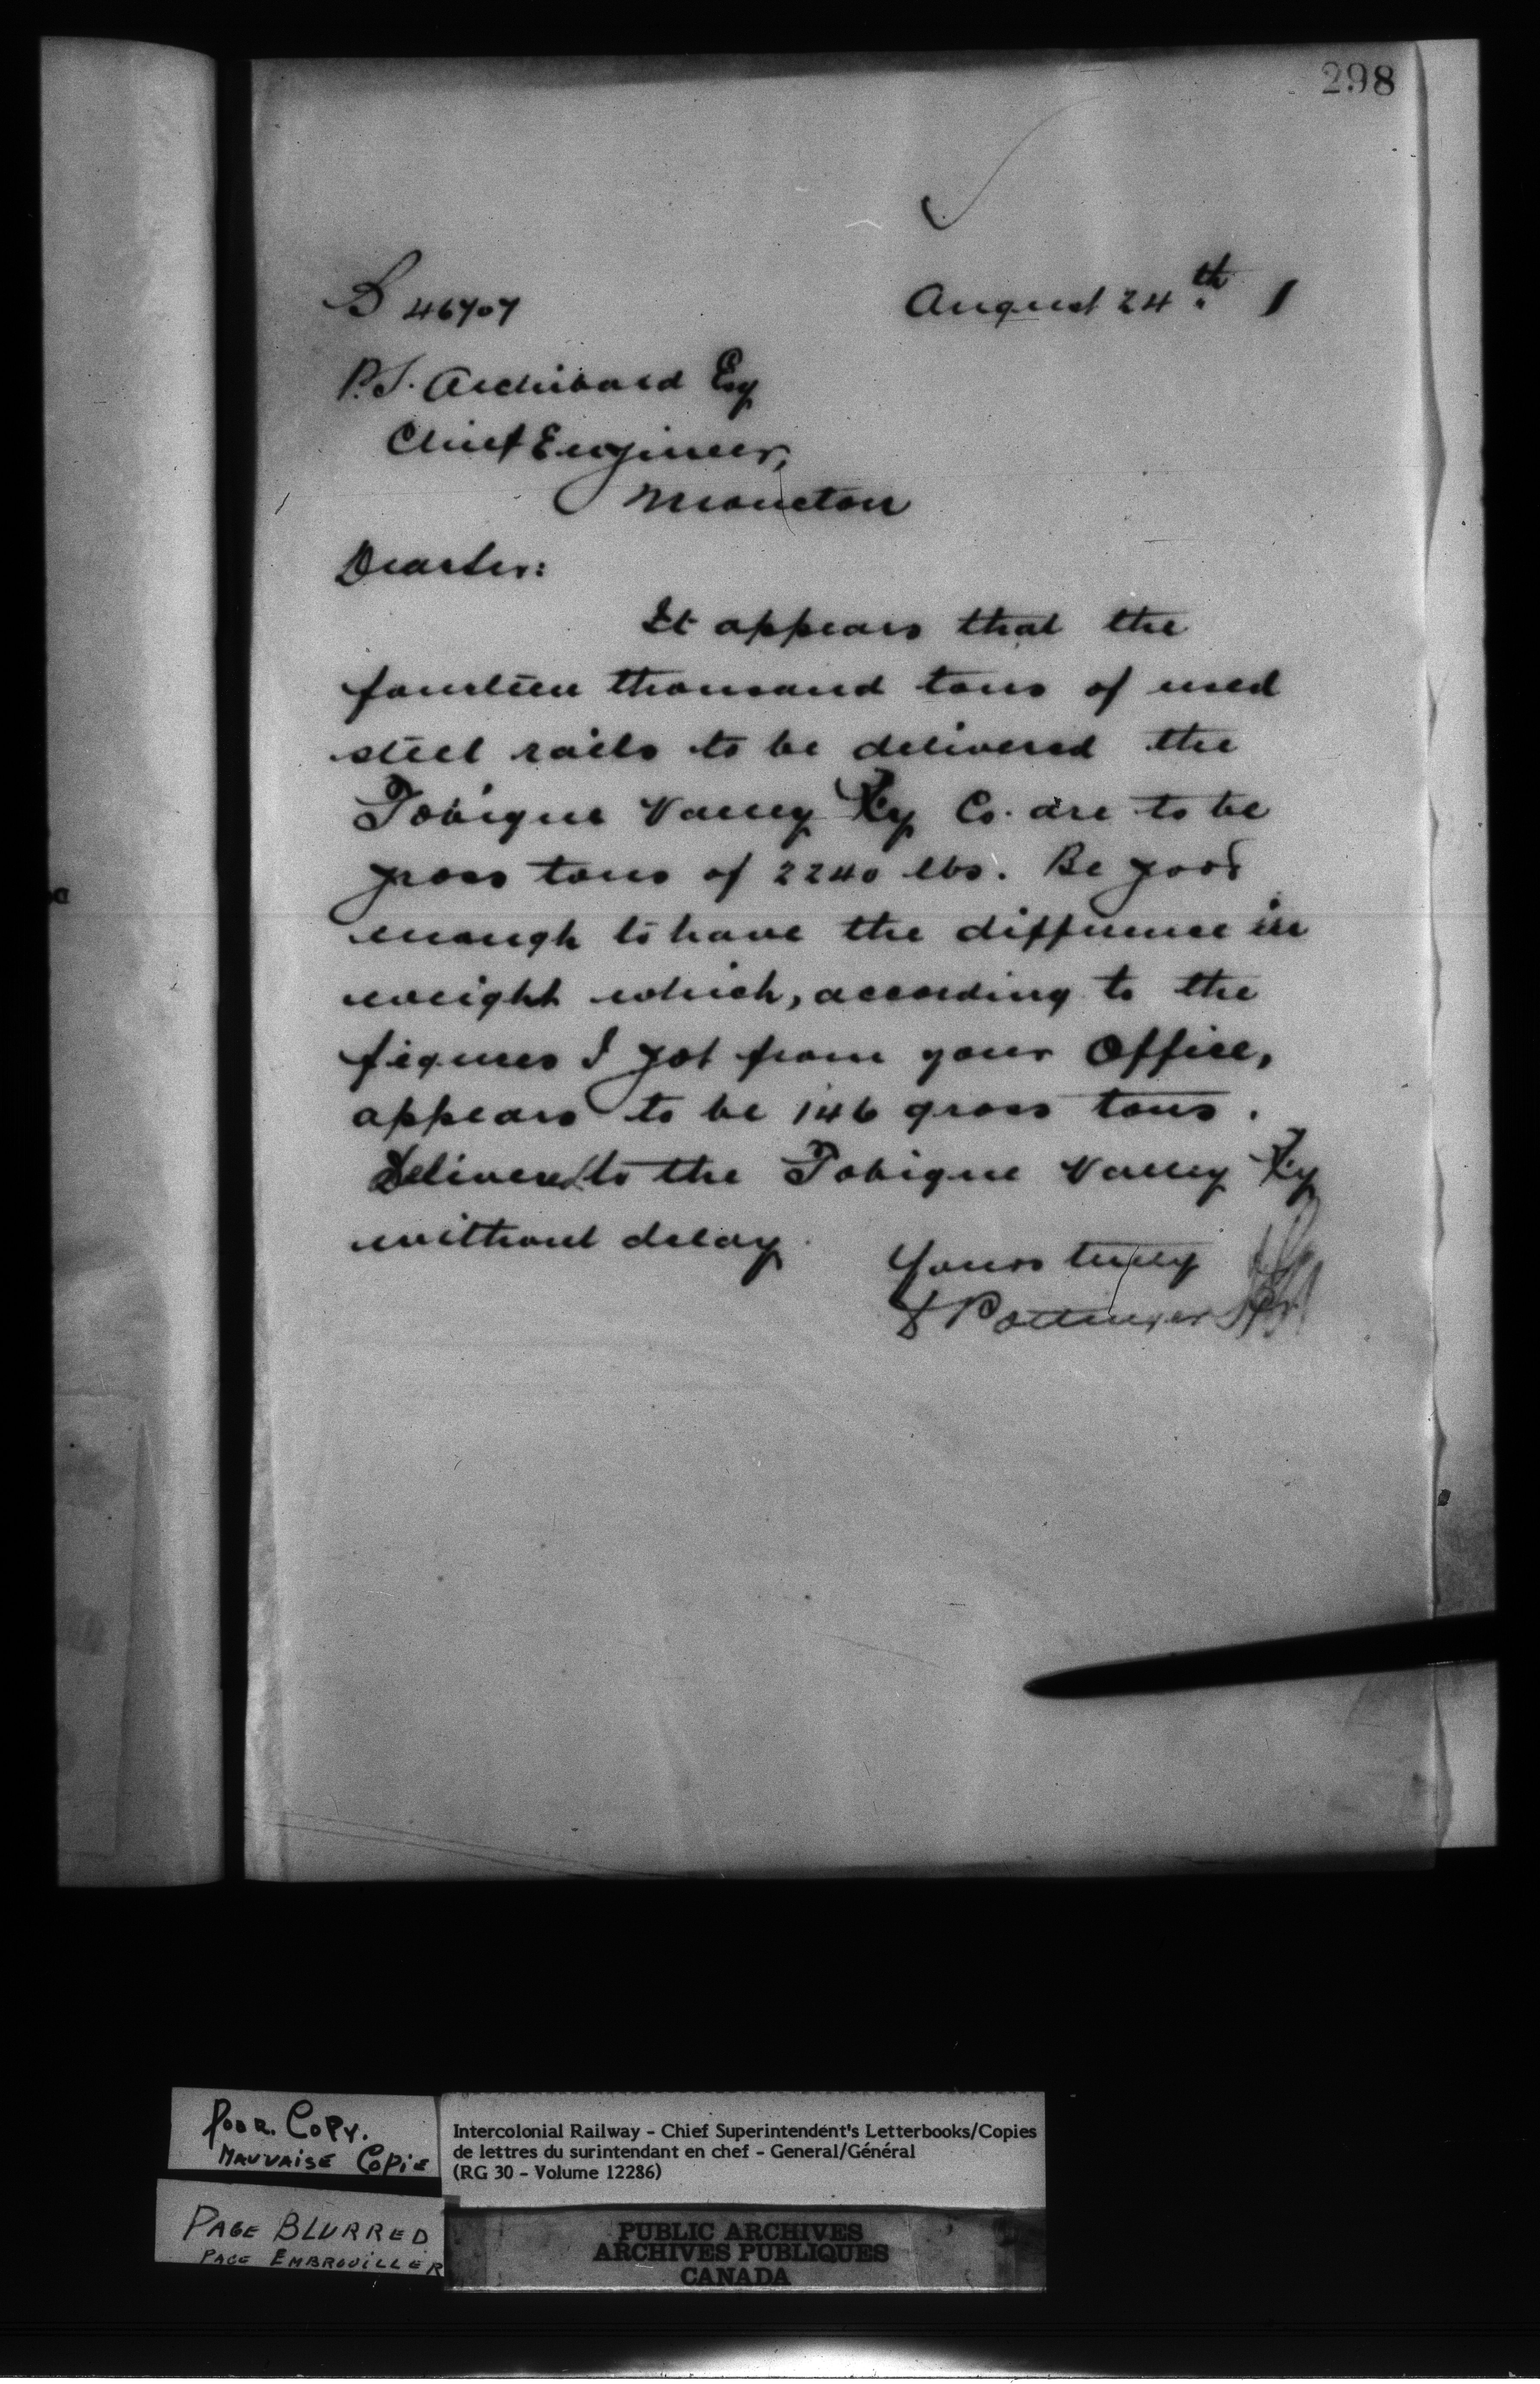 298
B 46707 August 24th. 1
P.S. Archibald Esq
Chief Engineer,
Moncton
Dear Sir:
It appears that the
fourteen thousand tons of used
steel rails to be delivered the
Tobique Valley Ry Co. are to be
gross tons of 2240 lbs. Be good
enough to have the difference in
weight which, according to the
figures I got from your Office,
appears to be 146 gross tons.
Delivered to the Tobique Valley Ry
without delay.
Yours truly
D Pottinger
Poor. Copy.
Mauvaise Copie
Page Blurred
Page Embrouiller
Intercolonial Railway - Chief Superintendent's Letterbooks/Copies
de lettres du surintendant en chef - General/Général
(RG 30 - Volume 12286)
PUBLIC ARCHIVES
ARCHIVES PUBLIQUES
CANADA